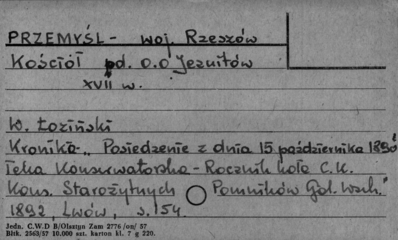 PRZEMYŚL - woj. Rzeszów
Kościół pd. o.o Jezuitów
XVII w.
W. Łoziński
Kronika - „Posiedzenie z dnia 15 października 1890
Teka Konserwatorska - Rocznik koła C.K.
Kons. Starożytnych Pomników Gal. Wsch."
1892, Lwów, s. 154.
Jedn. C.W.D B/Olsztyn Zam 2776 /on/ 57
Bltk. 2563/57 10.000 szt. karton kl. 7 g 220.